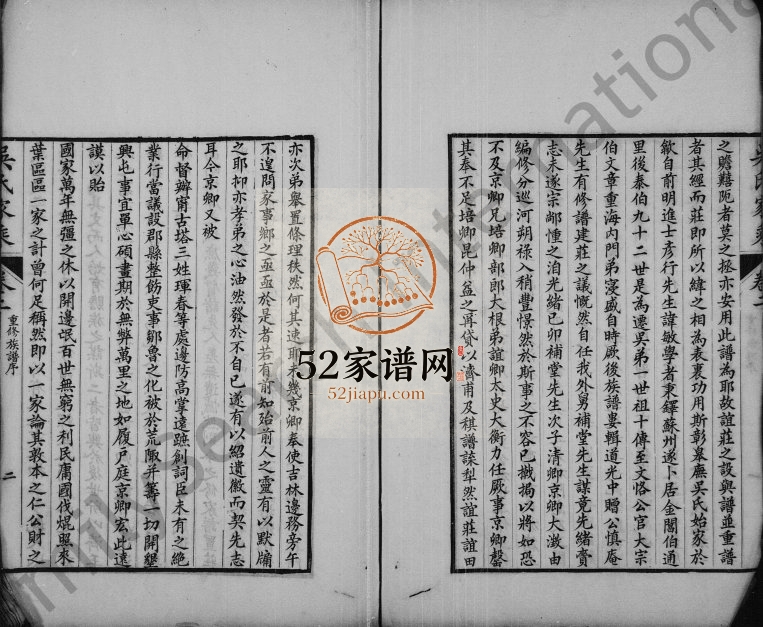 之贍黷阤者莫之拯亦安用此譜為耶故誼莊之設與譜並重譜
者其經而莊即所以緯之相為表裏功用斯彰皋廡吳氏始家於
歙自前明進士彥行先生諱敏學者秉鐸蘇州遂卜居金閶伯通
里後泰伯九十二世是為遷吳弟一世祖十傳至文恪公官大宗
伯文章重海內門弟寖盛自時厥後族譜婁輯道光中贈公慎庵
先生有修譜建莊之議慨然自任我外舅補堂先生謀竟先緒齎
志未遂宗鄰惟之洎光緒己卯補堂先生次子清卿京卿大澂由
編修分巡河朔祿入稍豐憬然於斯事之不容已戬揭以將如恐
不及京卿兄培卿部郎大根弟誼卿太史大衡力任厥事京卿罄
其奉不足培卿昆仲益之再貸以濟甫及祺譜諜犁然誼莊誼田
亦次弟舉置條理秩然何其速耶未幾京卿奉使吉林邊務旁午
不遑問家事鄉之亟亟於是者若有前知殆前人之靈有以默牖
之耶抑亦孝弟之心油然發於不自已遂有以紹遺徽而契先志
耳今京卿又被
命督辦甯古塔三姓琿春等處邊防高掌遠蹠創詞臣未有之絕
業行當議設郡縣整飭吏事鄒魯之化被於荒陬并籌一切開墾
興屯事宜單心碩畫期於無弊萬里之地如履戶庭京卿宏此遠
謨以貽
國家萬年無彊之休以開邊氓百世無窮之利民庸國伐焜照來
葉區區一家之計曾何足稱然即以一家論其敦本之仁公財之
吳氏家乘
卷二
重修族譜序
二
吳氏家乘
卷二
52家谱网
52jiapu.com
FamilySearch International